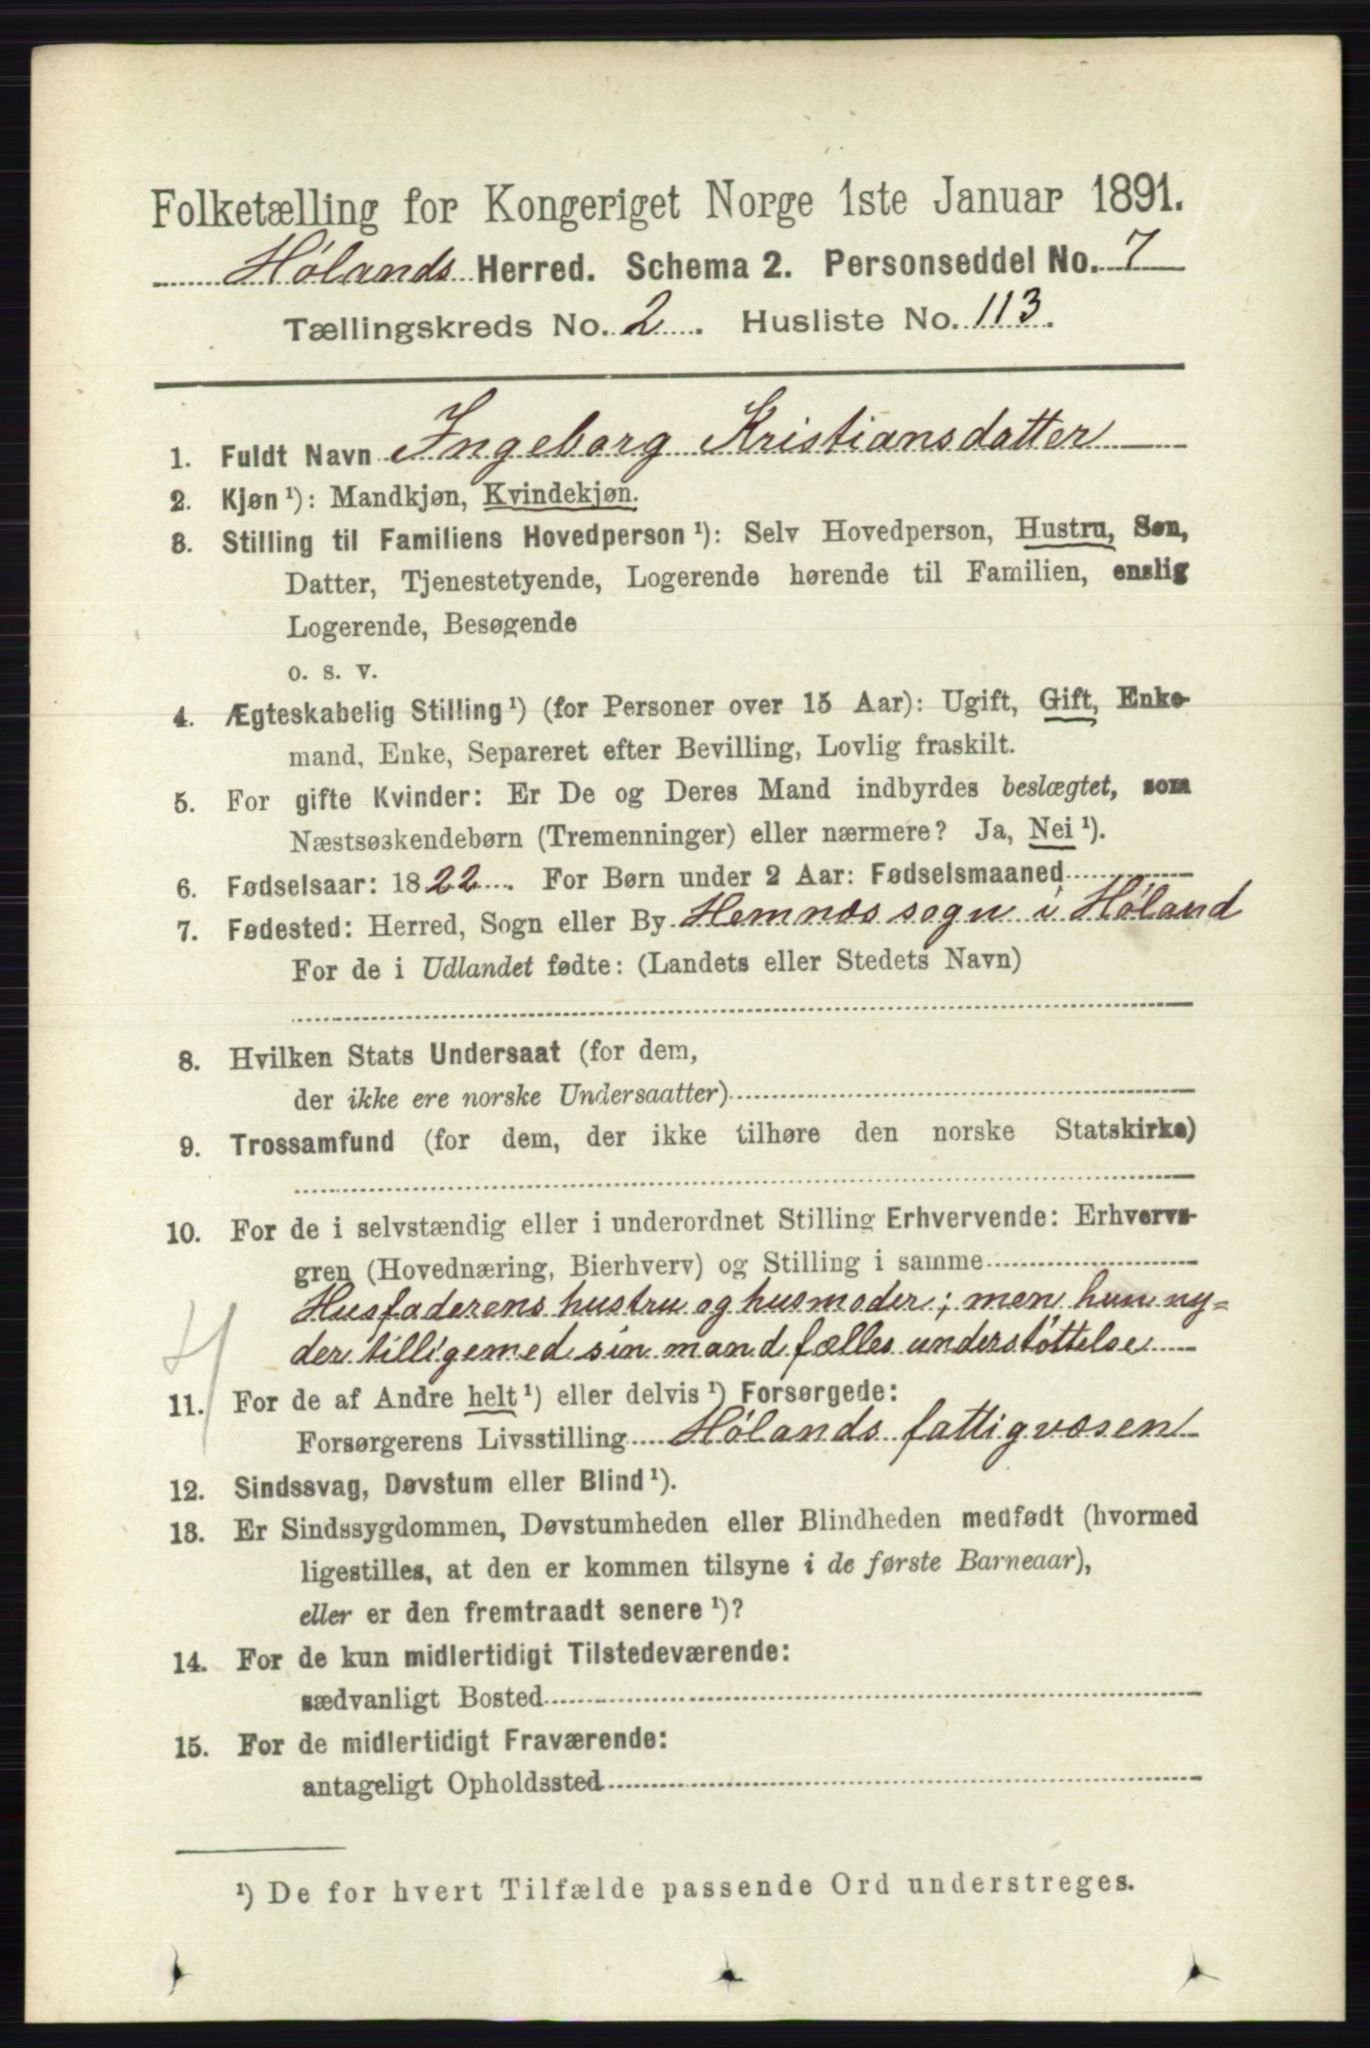 Folketælling for Kongeriget Norge 1ste Januar 1891.
Hølands Herred. Schema 2. Personseddel No. 7
Tællingskreds No. 2. Husliste No. 113.
1. Fuldt Navn Ingeborg Kristiansdatter
2. Kjøn ¹): Mandkjøn, Kvindekjøn.
3. Stilling til Familiens Hovedperson ¹): Selv Hovedperson, Hustru, Søn,
Datter, Tjenestetyende, Logerende hørende til Familien, enslig
Logerende, Besøgende
o. s. v.
4. Ægteskabelig Stilling ¹) (for Personer over 15 Aar): Ugift, Gift, Enke-
mand, Enke, Separeret efter Bevilling, Lovlig fraskilt.
5. For gifte Kvinder: Er De og Deres Mand indbyrdes beslægtet, som
Næstsøskendebørn (Tremenninger) eller nærmere? Ja, Nei ¹).
6. Fødselsaar: 1822. For Børn under 2 Aar: Fødselsmaaned
7. Fødested: Herred, Sogn eller By Hemnæs sogn i Høland
For de i Udlandet fødte: (Landets eller Stedets Navn)
8. Hvilken Stats Undersaat (for dem,
der ikke ere norske Undersaatter)
9. Trossamfund (for dem, der ikke tilhøre den norske Statskirke)
10. For de i selvstændig eller i underordnet Stilling Erhvervende: Erhvervs-
gren (Hovednæring, Bierhverv) og Stilling i samme
Husfaderens hustru og husmoder; men hun ny=
der tilligemed sin mand fælles understøttelse
11. For de af Andre helt ¹) eller delvis ¹) Forsørgede:
Forsørgerens Livsstilling Hølands fattigvæsen
12. Sindssvag, Døvstum eller Blind ¹).
13. Er Sindssygdommen, Døvstumheden eller Blindheden medfødt (hvormed
ligestilles, at den er kommen tilsyne i de første Barneaar),
eller er den fremtraadt senere ¹)?
14. For de kun midlertidigt Tilstedeværende:
sædvanligt Bosted
15. For de midlertidigt Fraværende:
antageligt Opholdssted
¹) De for hvert Tilfælde passende Ord understreges.